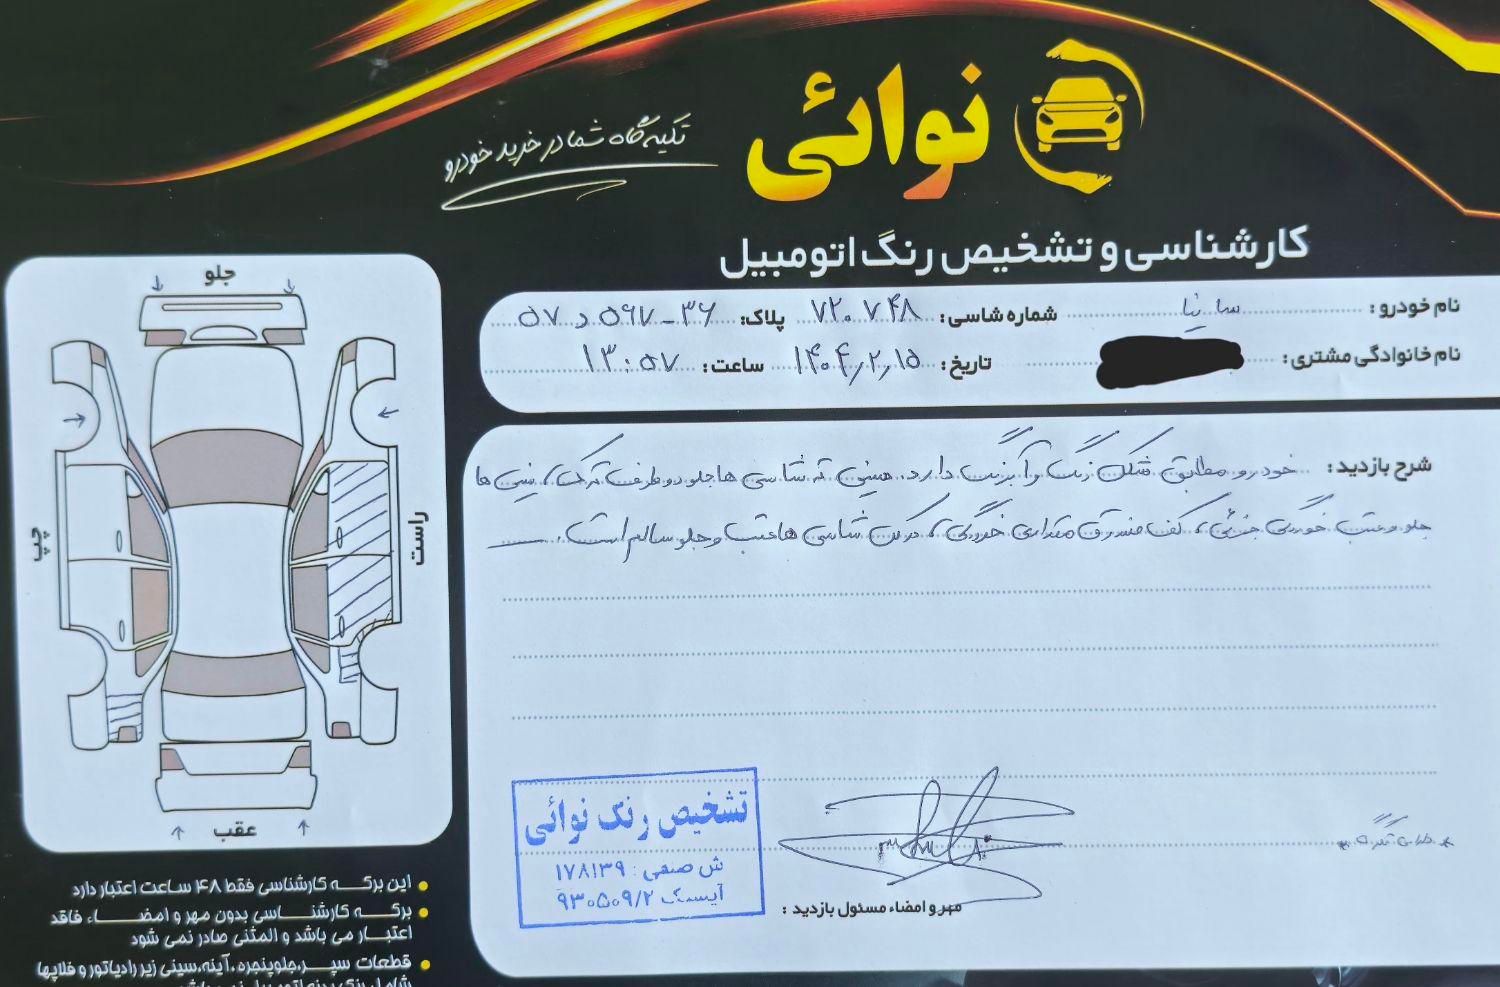 نوائی
تکیه‌گاه شما در خرید خودرو
کارشناسی و تشخیص رنگ اتومبیل
نام خودرو: ساینا شماره شاسی: ۷۲۰۷۴۸ پلاک: ۵۷ د ۵۶۷-۳۶
نام خانوادگی مشتری: تاریخ: ۱۴۰۴,۲,۱۵ ساعت: ۱۳:۵۷
شرح بازدید: خودرو مطابق شکل رنگ و آبرنگ دارد. سینی ته شاسی ها جلو دو طرف ترک، سینی ها
جلو و عقب خوردگی جزئی، کف صندوق مقداری خوردگی، شاسی ها عقب و جلو سالم است.
جلو
چپ
راست
عقب
تشخیص رنگ نوائی
ش صنفی: ۱۷۸۱۳۹
آیسک ۹۳۰۵۰۹/۲
مهر و امضاء مسئول بازدید:
این برگه کارشناسی فقط ۴۸ ساعت اعتبار دارد
برگه کارشناسی بدون مهر و امضاء فاقد
اعتبار می باشد و المثنی صادر نمی شود
قطعات سپر،جلوپنجره،آینه،سینی زیر رادیاتور و فلاپها